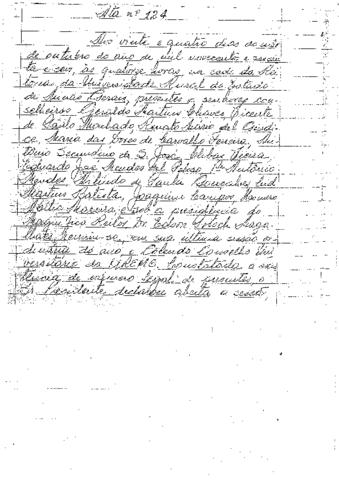 Ata nº 124
Aos vinte e quatro dias do mês
de outubro do ano de mil novecentos e sessen
ta e seis, às quatorze horas, na sede da Rei
toria da Universidade Rural do Estado
de Minas Gerais, presentes os senhores con
selheiros Geraldo Martins Chaves, Vicente
de Paulo Machado, Renato Sérgio del Giudi
ce, Maria das Dores de Carvalho Ferreira, An
tônio Secundino de S. José, Clibas Vieira,
Eduardo José Mendes del Peloso, Antônio
Martins Batista, Joaquim Campos,
e sob a presidência do
Magnífico Reitor, Dr. Edson Potsch Maga
lhães, reuniu-se, em sua última sessão or
dinária do ano, o Colendo Conselho Uni
versitário da UREMG. Constatada a exis
tência de número legal de presentes, o
Sr. Presidente declarou aberta a sessão